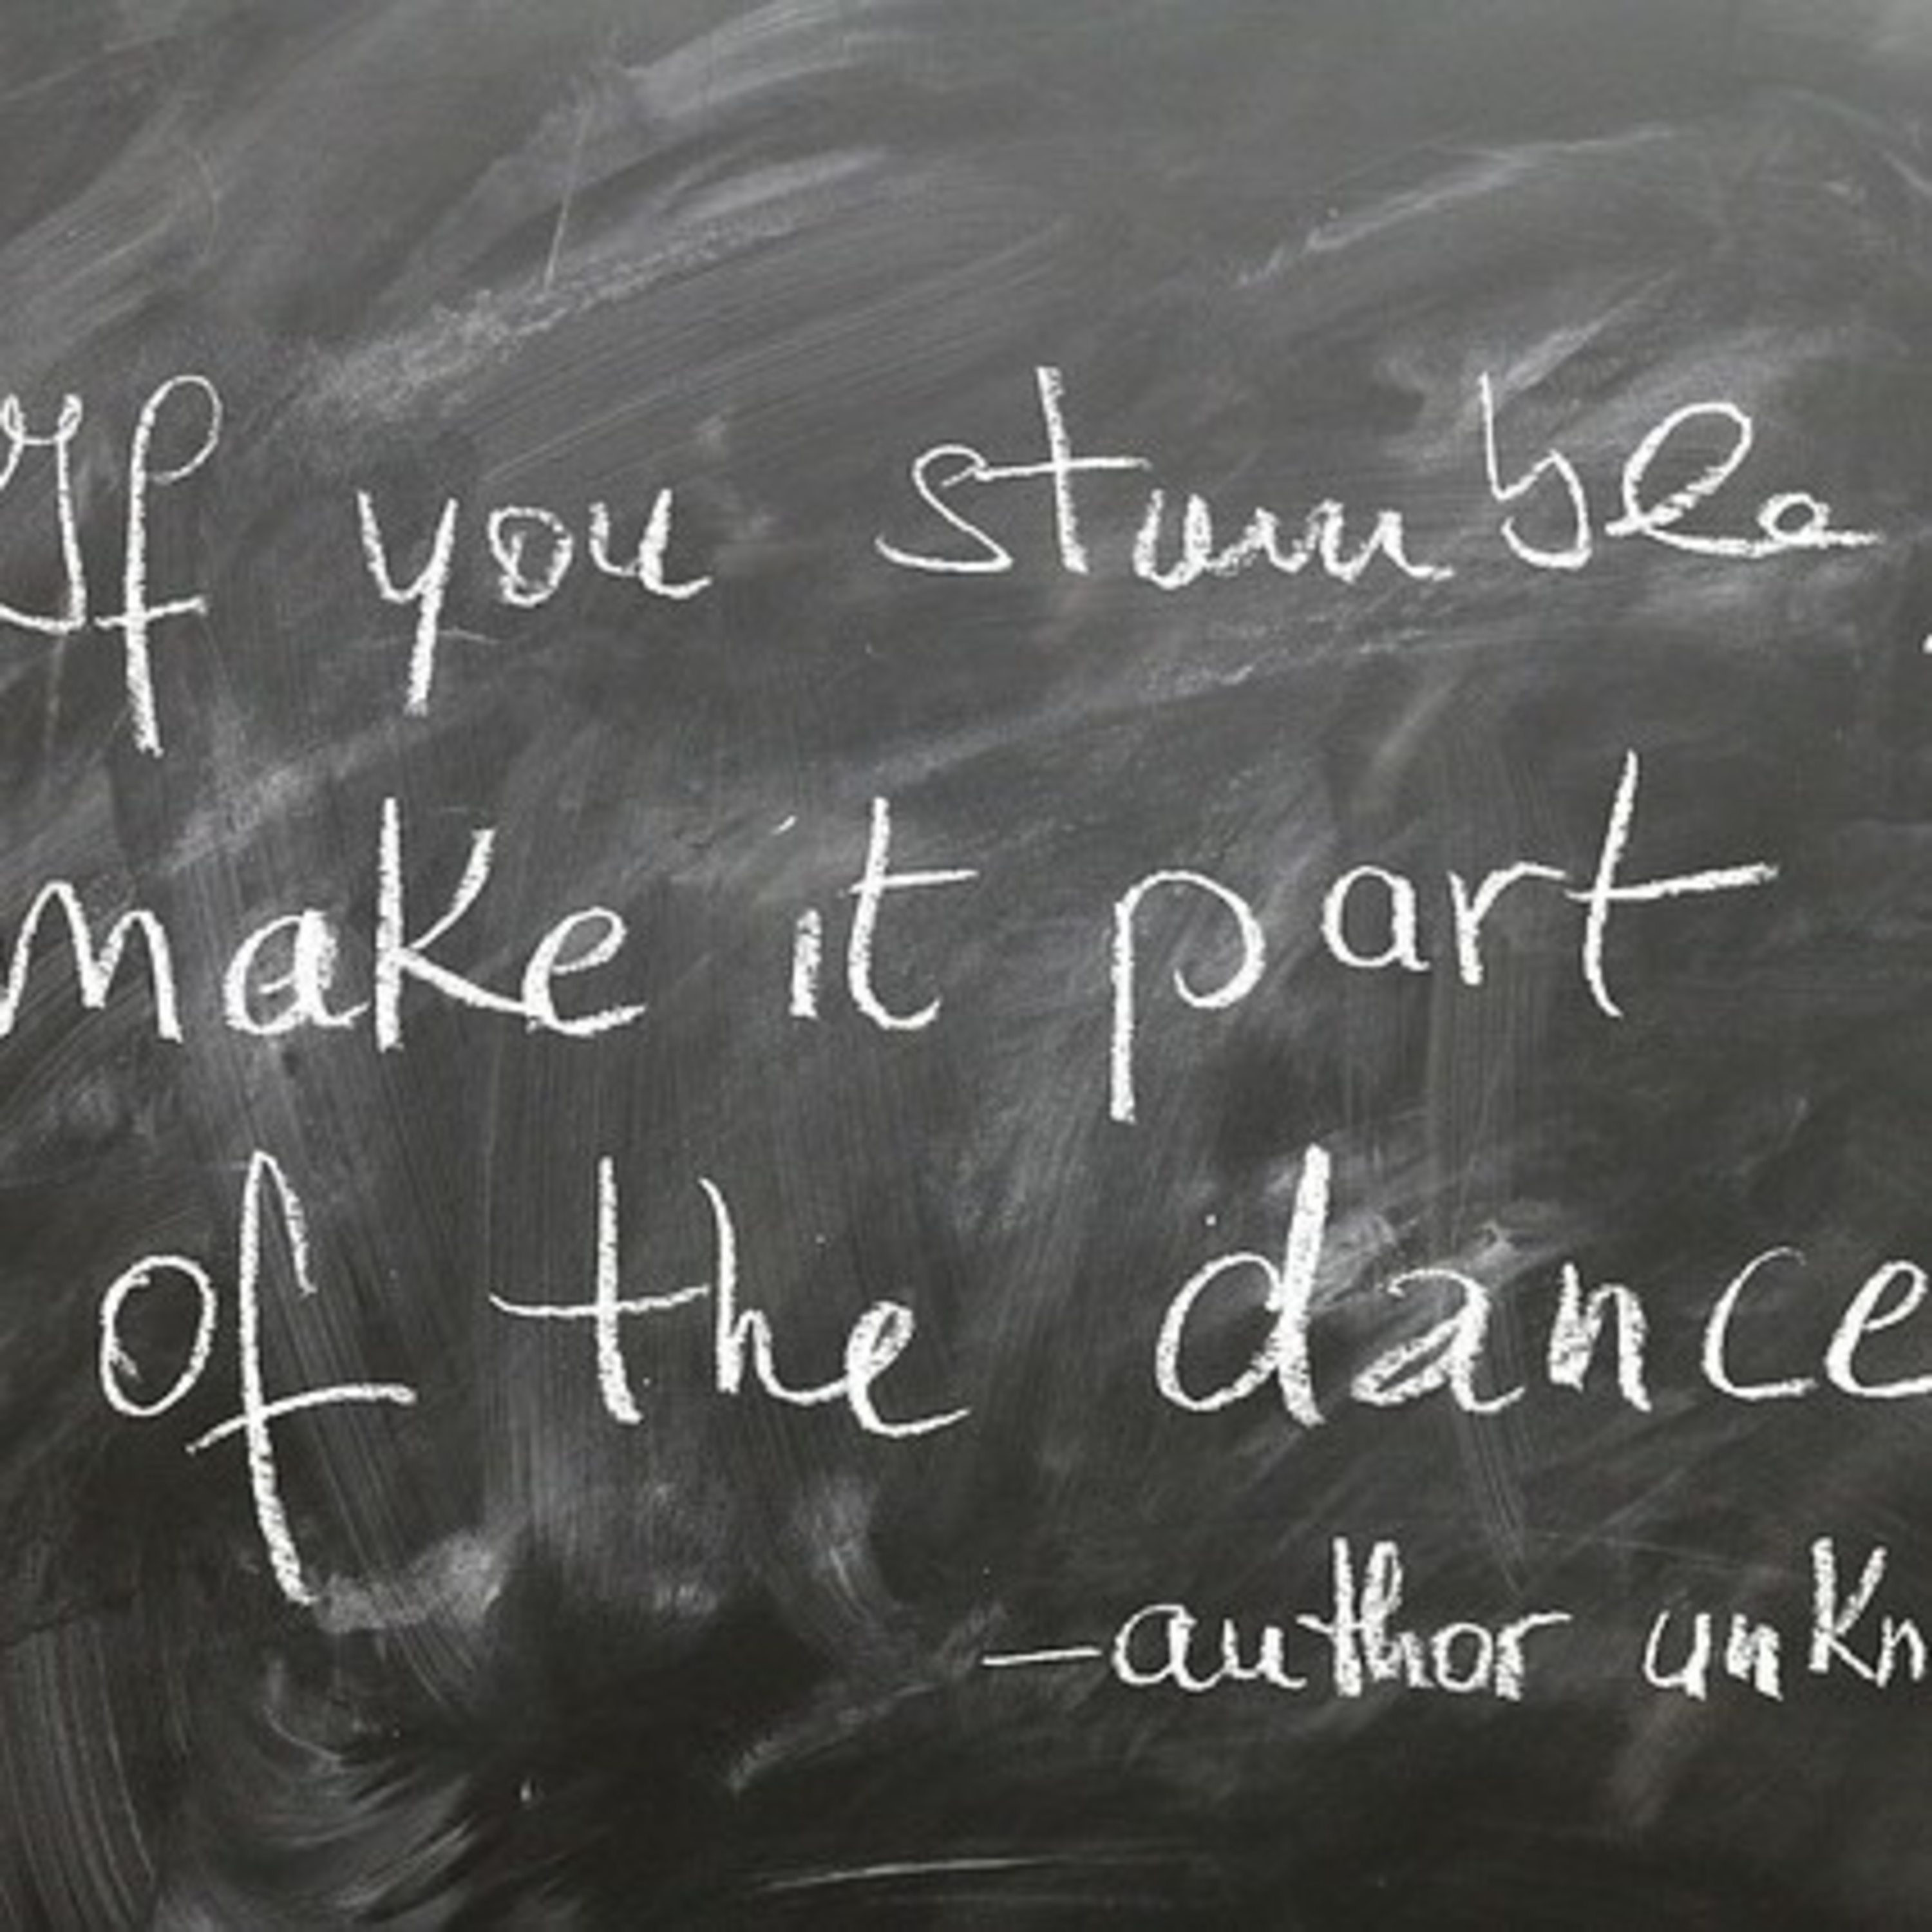 If you stumble
make it part
of the dance
-author unkn